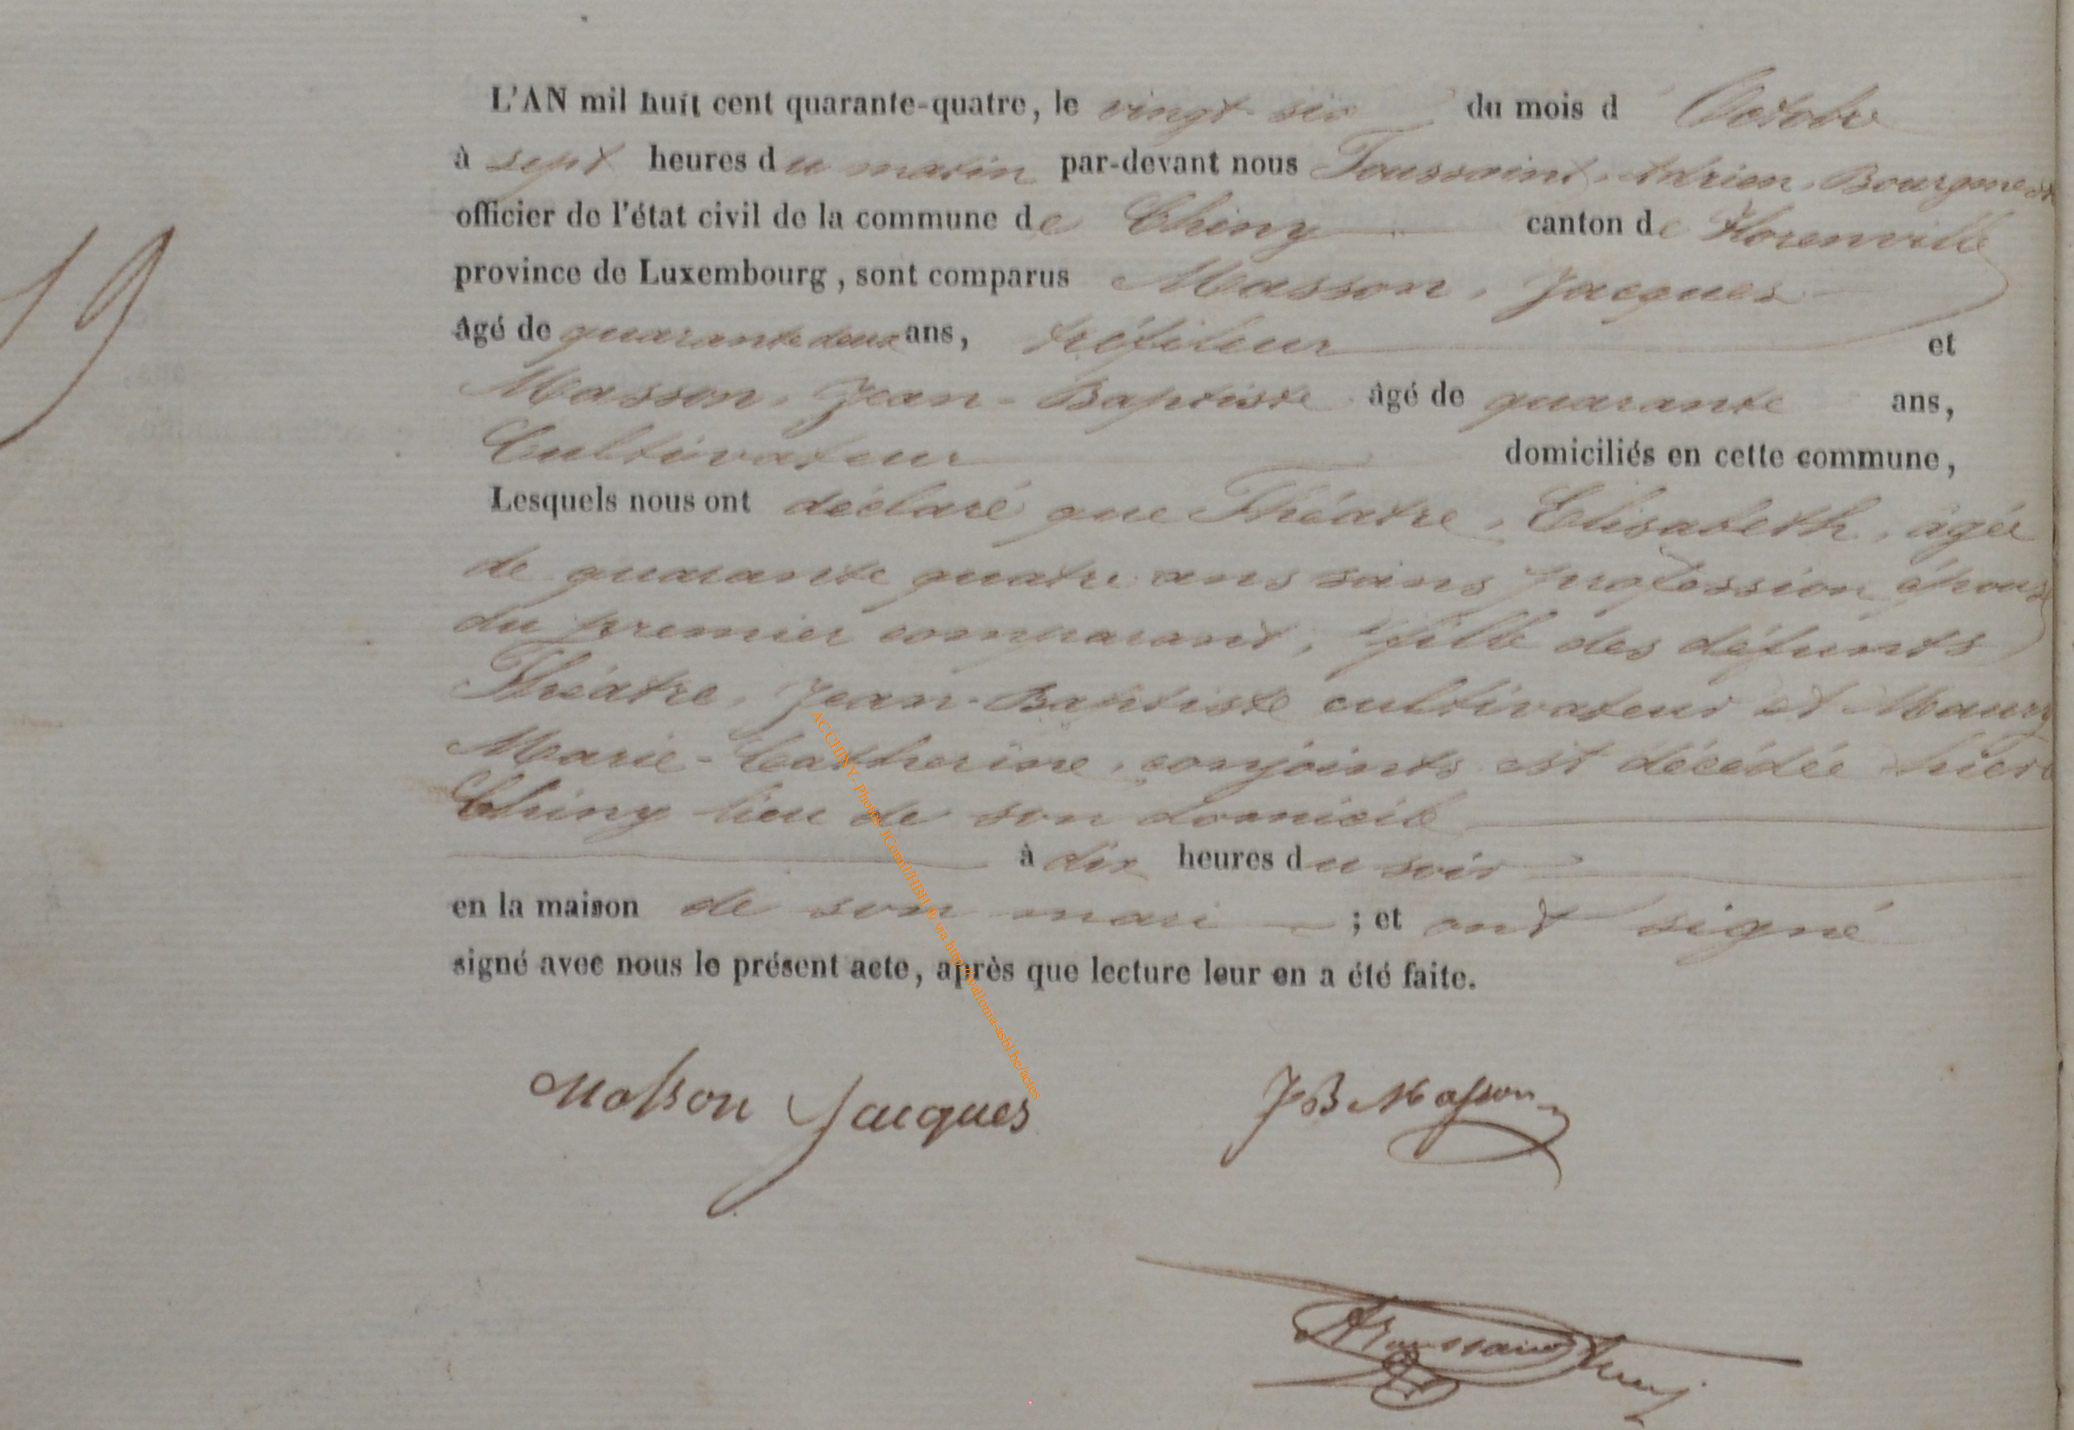 L'AN mil huit cent quarante-quatre, le vingt-six du mois d Octobre
à sept heures du matin par-devant nous Toussaint, Adrien, Bourgmest
officier de l'état civil de la commune de Chiny canton de Florenville
province de Luxembourg, sont comparus Masson, Jacques
19
âgé de quarante deux ans, tréfileur et
Masson, Jean-Baptiste âgé de quarante ans,
Cultivateur domiciliés en cette commune,
Lesquels nous ont déclaré que Théatre, Elisabeth, âgée
de quarante quatre ans sans profession épouse
du premier comparant, fille des défunts
Théatre, Jean-Baptiste cultivateur et
Marie-Catherine, conjoints est décédée hier
Chiny lieu de son domicile
à dix heures du soir
en la maison de son mari ; et ont signé
signé avec nous le présent acte, après que lecture leur en a été faite.
Masson Jacques JB Masson
AToussaint